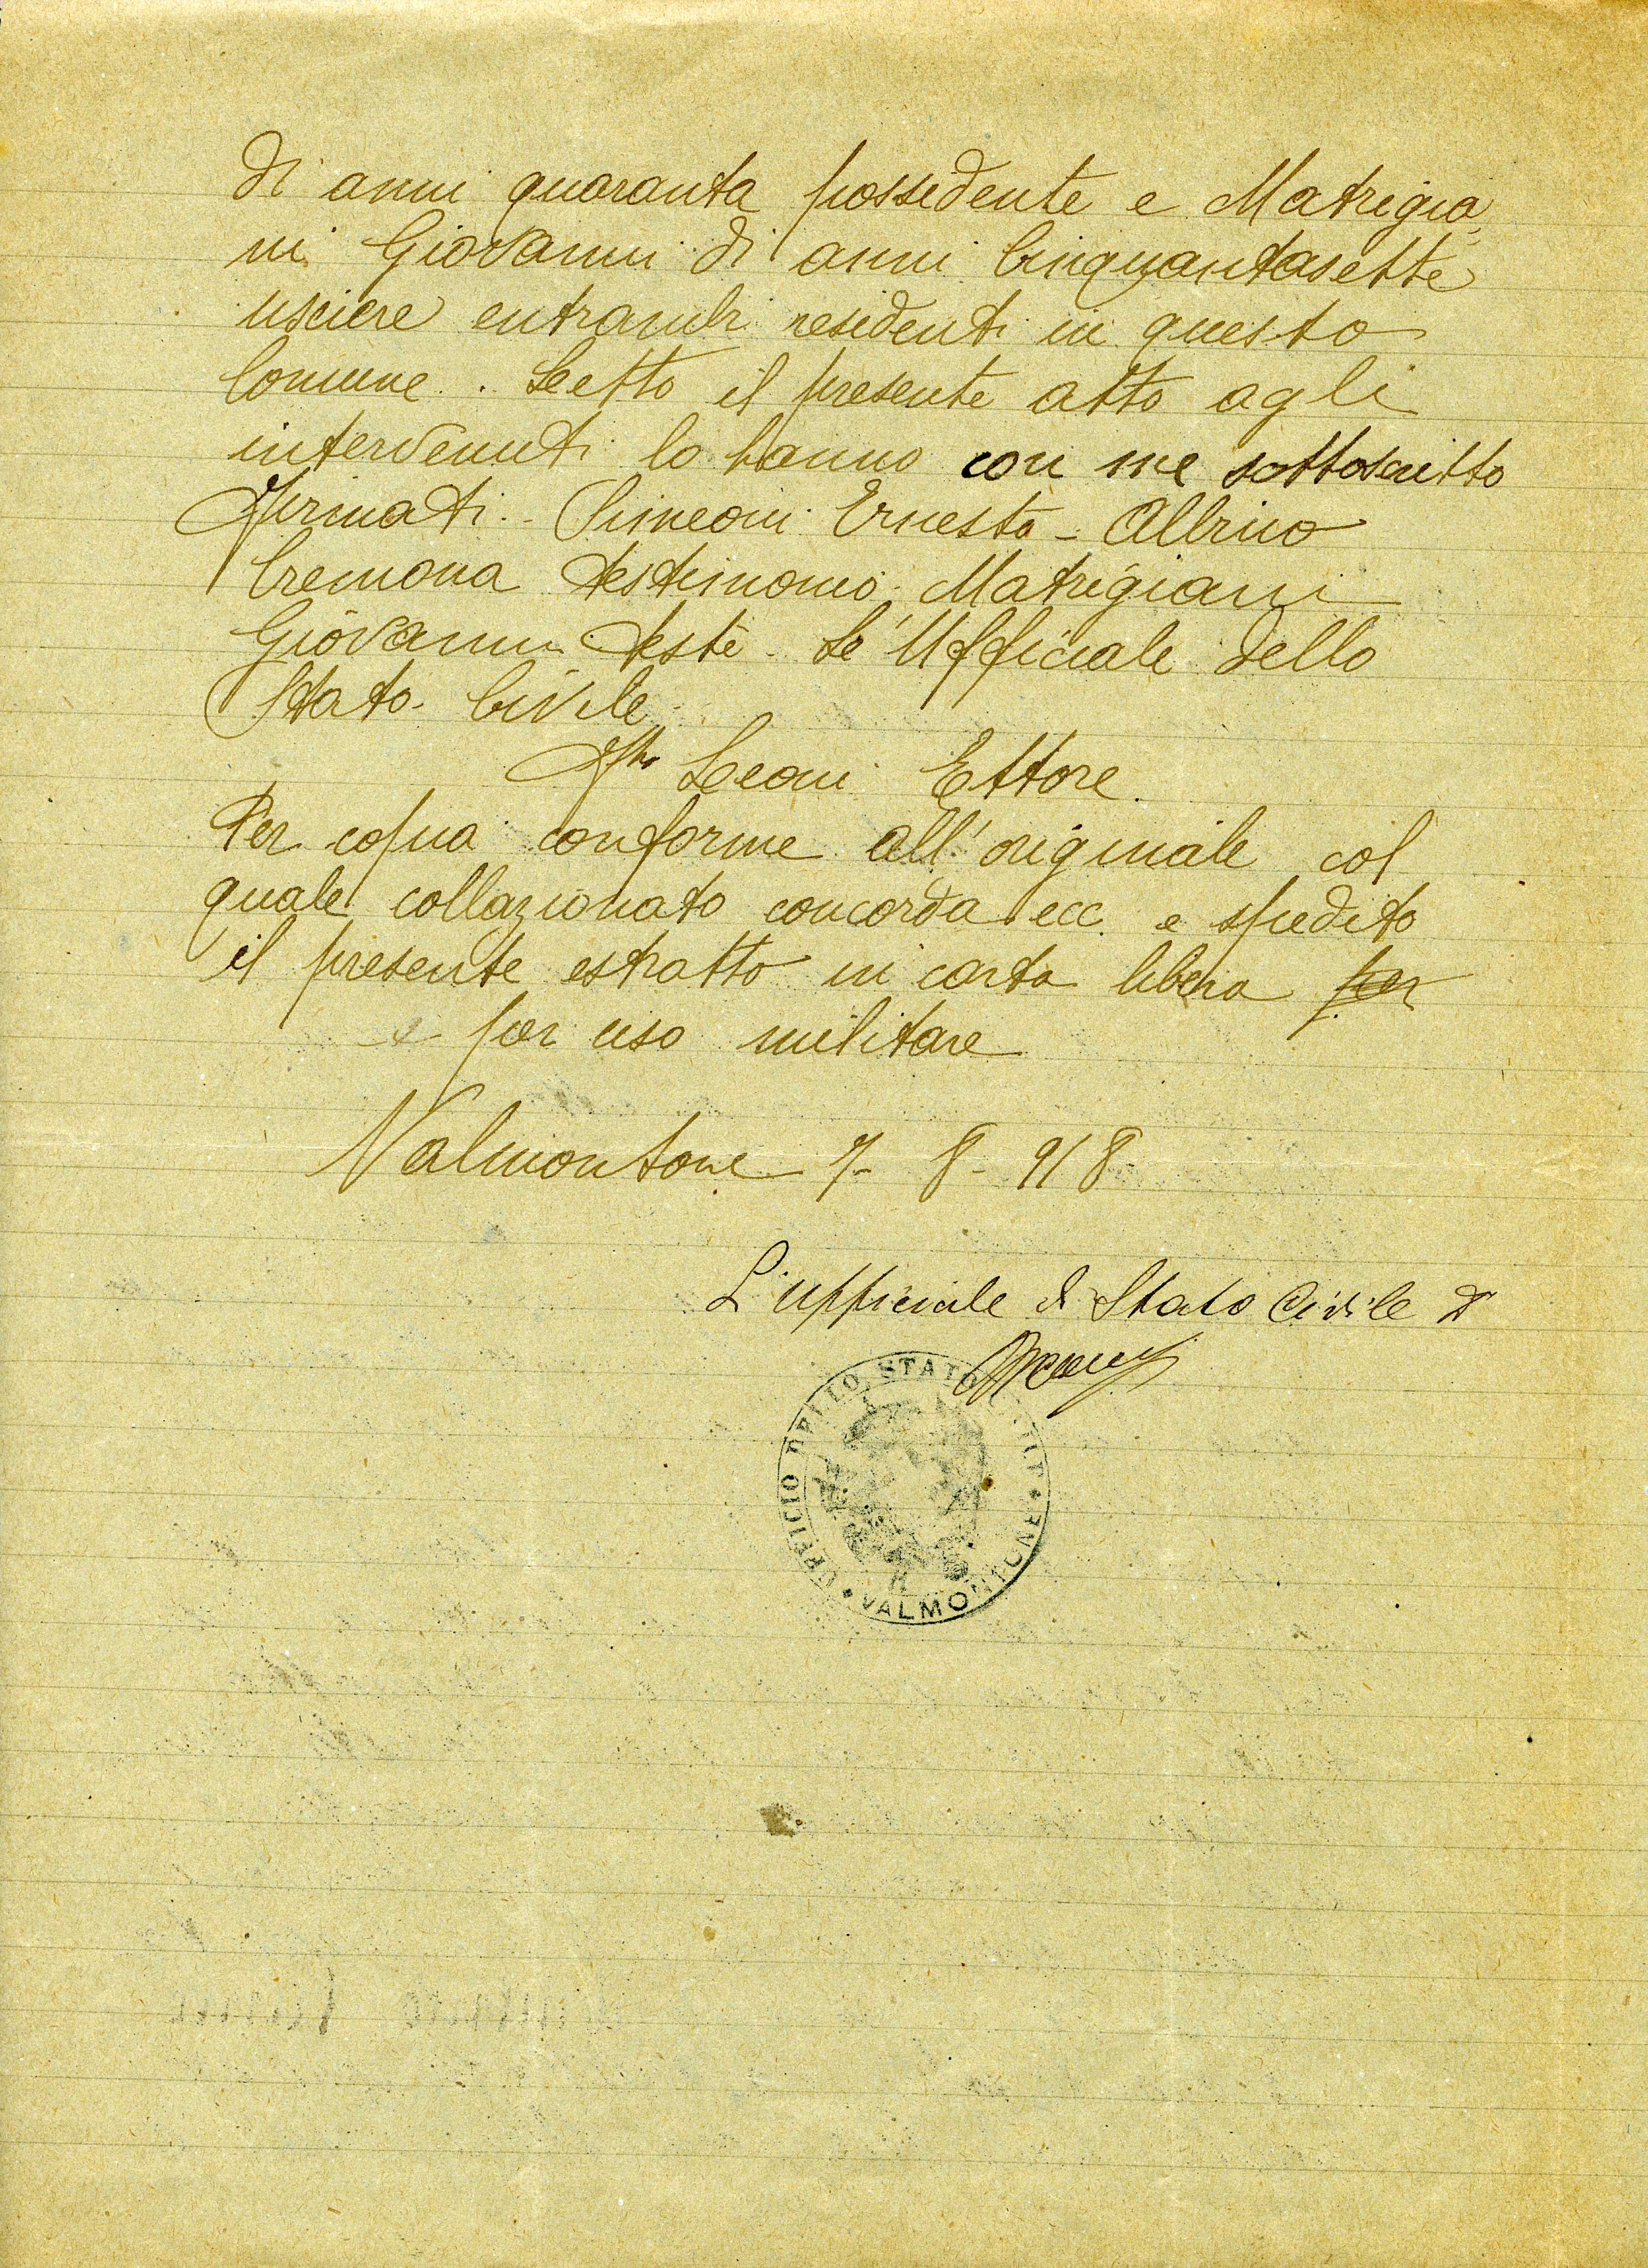 di anni quaranta possidente e Matrigia
ni Giovanni di anni Cinquantasette
usciere entrambi residenti in questo
Comune. Letto il presente atto agli
intervenuti lo hanno con me sottoscritto
Firmati - Simeoni Ernesto - Albino
Cremona testimonio. Matrigiani
Giovanni teste - L'Ufficiale dello
Stato Civile
Fto Leoni Ettore.
Per copia conforme all'originale col
quale collazionato concorda ecc. e spedito
il presente estratto in carta libera per
per uso militare
Valmontone 7-8-918
L'ufficiale di Stato Civile
UFFICIO DELLO STATO CIVILE • VALMONTONE •